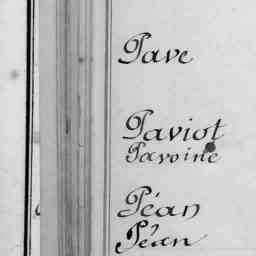 Pave
Paviot
Pavoine
Péan
Péan